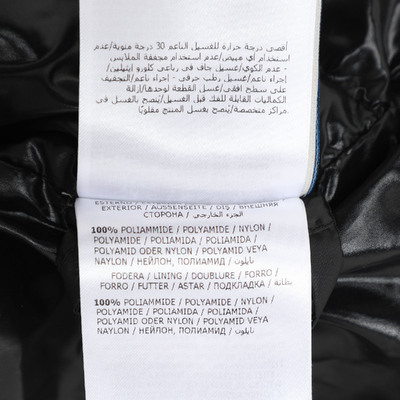 أقصى درجة حرارة للغسيل الناعم 30 درجة مئوية/عدم
استخدام أي مبيض/عدم استخدام مجففة الملابس
- عدم الكوي/غسيل جاف في رباعي كلورو إيثيلين/
إجراء ناعم/غسيل رطب حرفي - إجراء ناعم/التجفيف
على سطح أفقي/غسل القطعة لوحدها/إزالة
الكماليات القابلة للفك قبل الغسيل/يُنصح بالغسل في
مراكز متخصصة/يُنصح بغسل المنتج مقلوبًا.
EXTERIOR / AUSSENSEITE / DIŞ / ВНЕШНЯЯ
СТОРОНА / الجزء الخارجي
100% POLIAMMIDE / POLYAMIDE / NYLON /
POLYAMIDE / POLIAMIDA / POLIAMIDA /
POLYAMID ODER NYLON / POLYAMID VEYA
NAYLON / НЕЙЛОН, ПОЛИАМИД / نايلون
FODERA / LINING / DOUBLURE / FORRO /
FORRO / FUTTER / ASTAR / ПОДКЛАДКА / بطانة
100% POLIAMMIDE / POLYAMIDE / NYLON /
POLYAMIDE / POLIAMIDA / POLIAMIDA /
POLYAMID ODER NYLON / POLYAMID VEYA
NAYLON / НЕЙЛОН, ПОЛИАМИД / نايلون